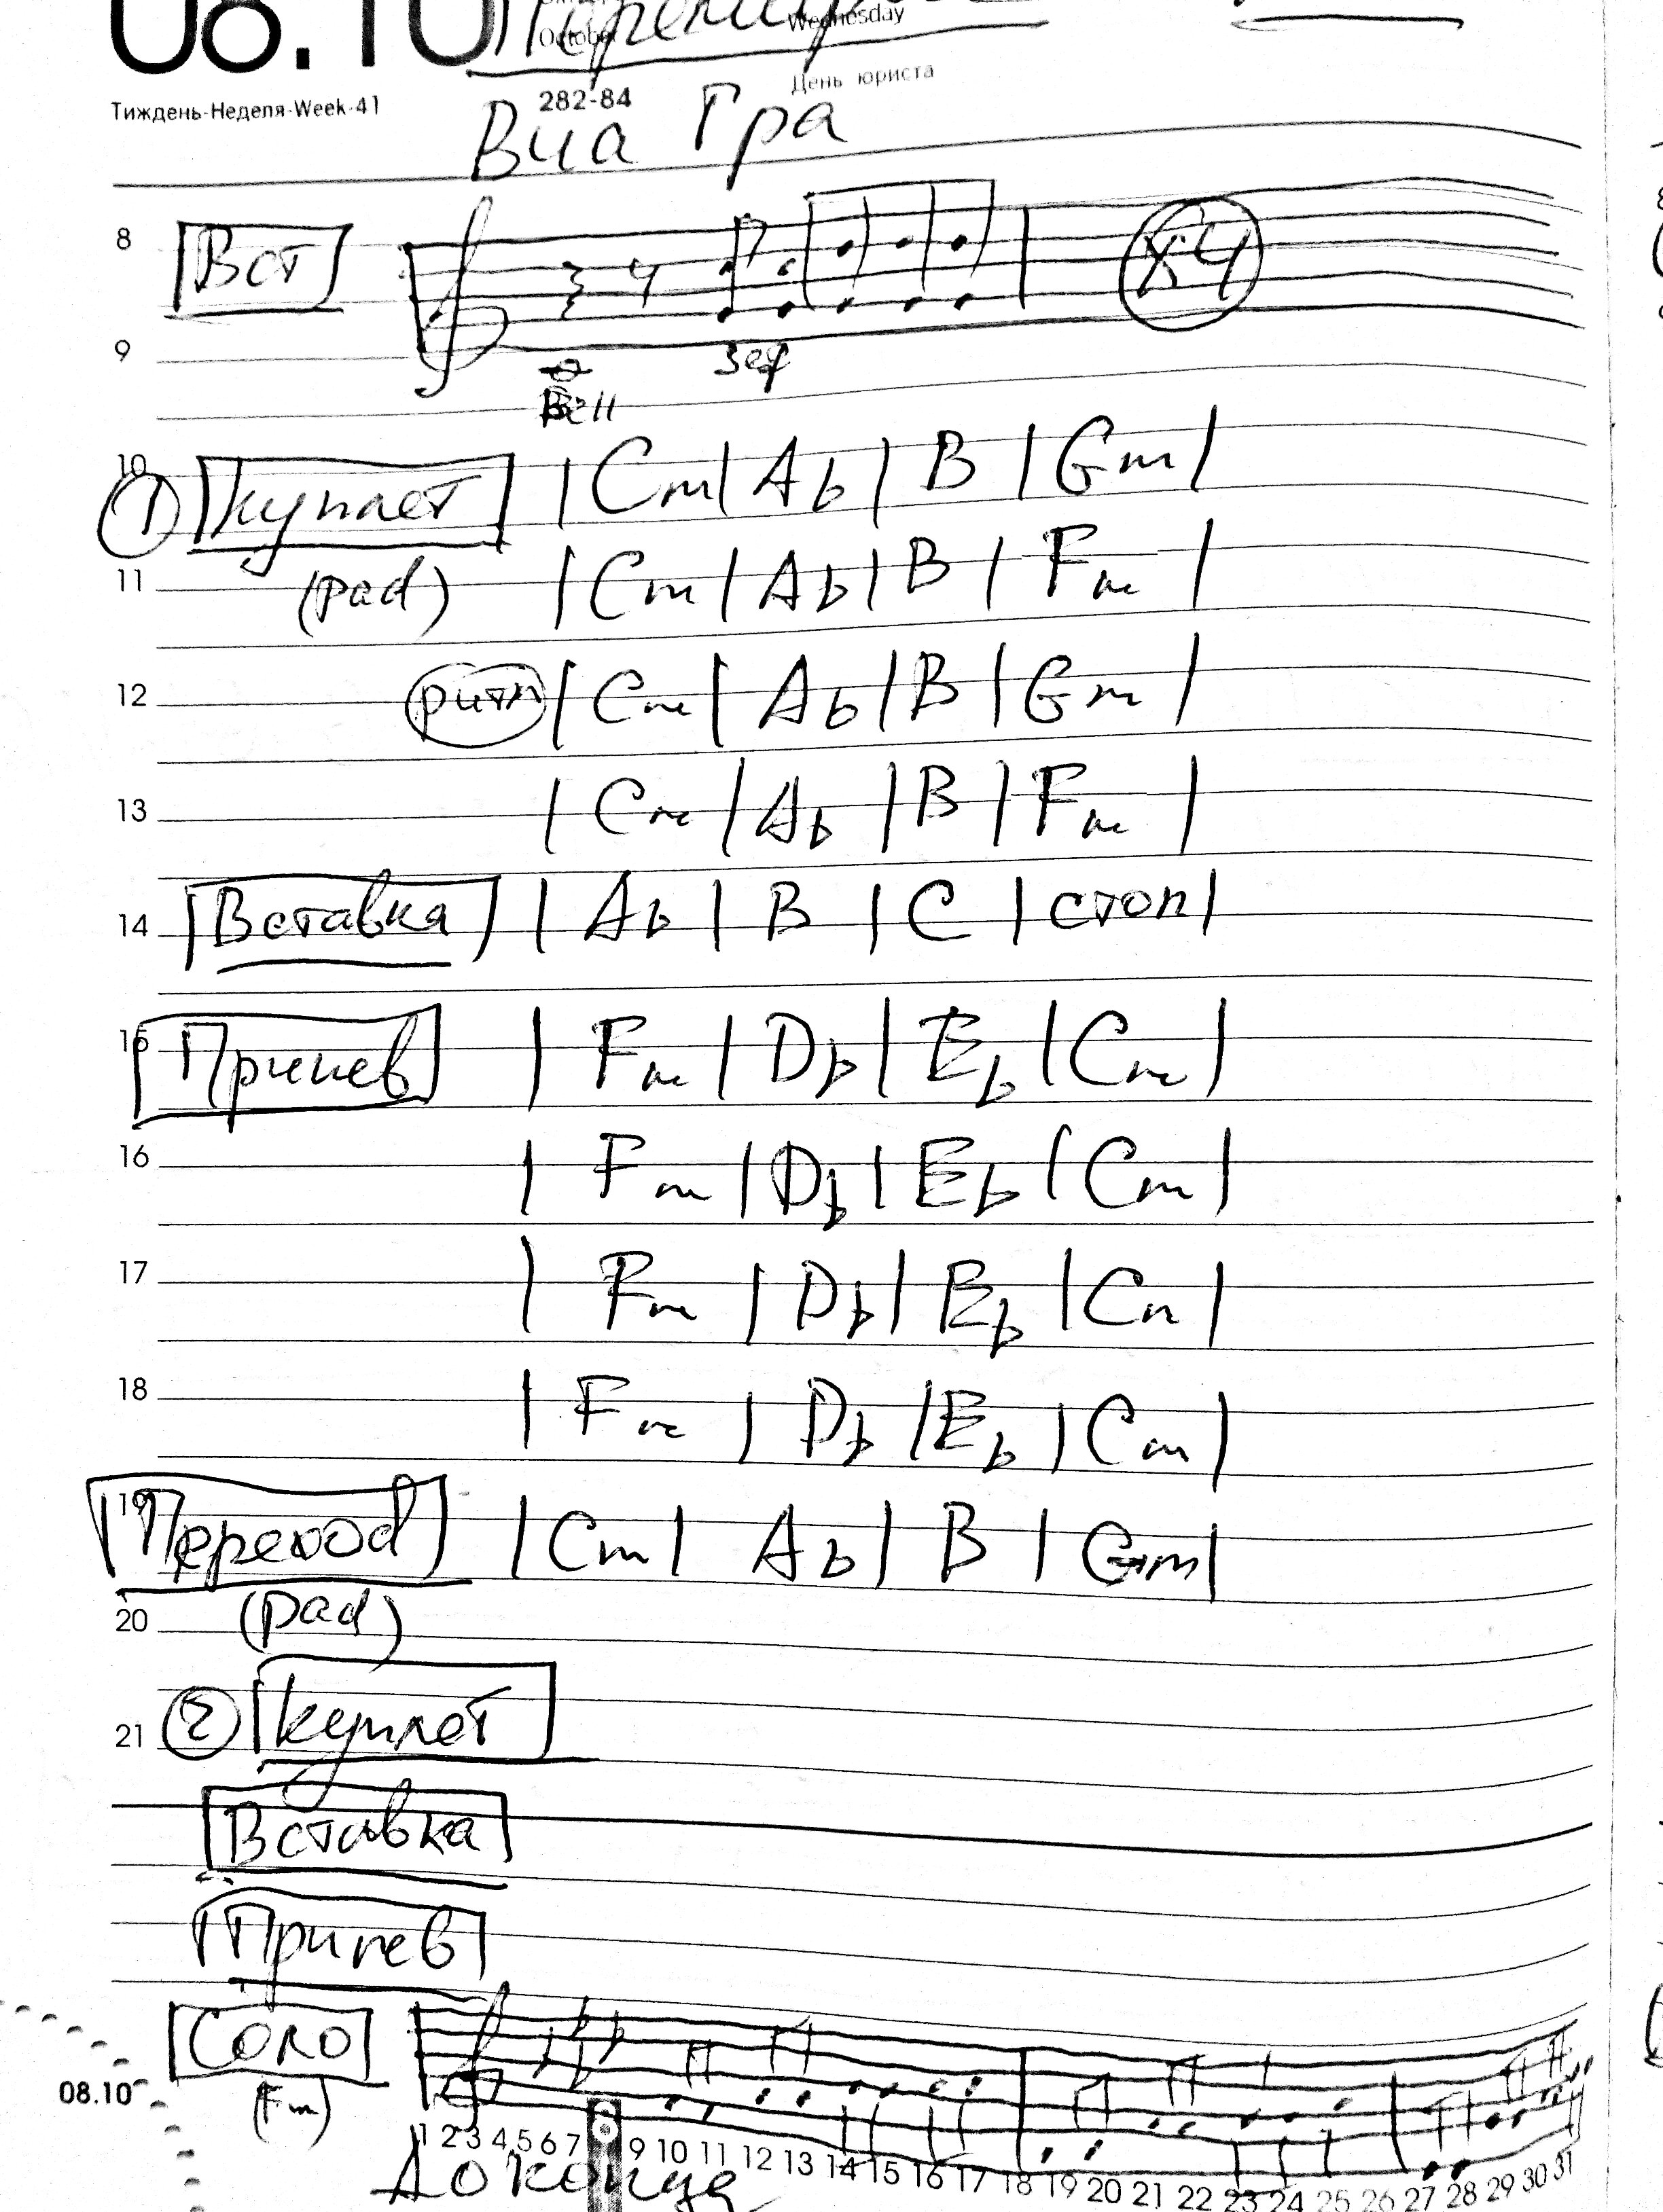 08.10
October Wednesday
Тиждень-Неделя-Week-41 282-84 День юриста
Виа Гра
8 Вст x4
9
Bell
10 1 куплет | Cm | Ab | B | Gm |
11 (pad) | Cm | Ab | B | Fm |
12 ритм | Cm | Ab | B | Gm |
13 | Cm | Ab | B | Fm |
14 Вставка | Ab | B | C | стоп |
15 Припев | Fm | Db | Eb | Cm |
16 | Fm | Db | Eb | Cm |
17 | Fm | Db | Eb | Cm |
18 | Fm | Db | Eb | Cm |
19 Переход | Cm | Ab | B | Gm |
20 (pad)
21 2 куплет
Вставка
Припев
Соло
08.10 (Fm)
1 2 3 4 5 6 7 8 9 10 11 12 13 14 15 16 17 18 19 20 21 22 23 24 25 26 27 28 29 30 31
До конца